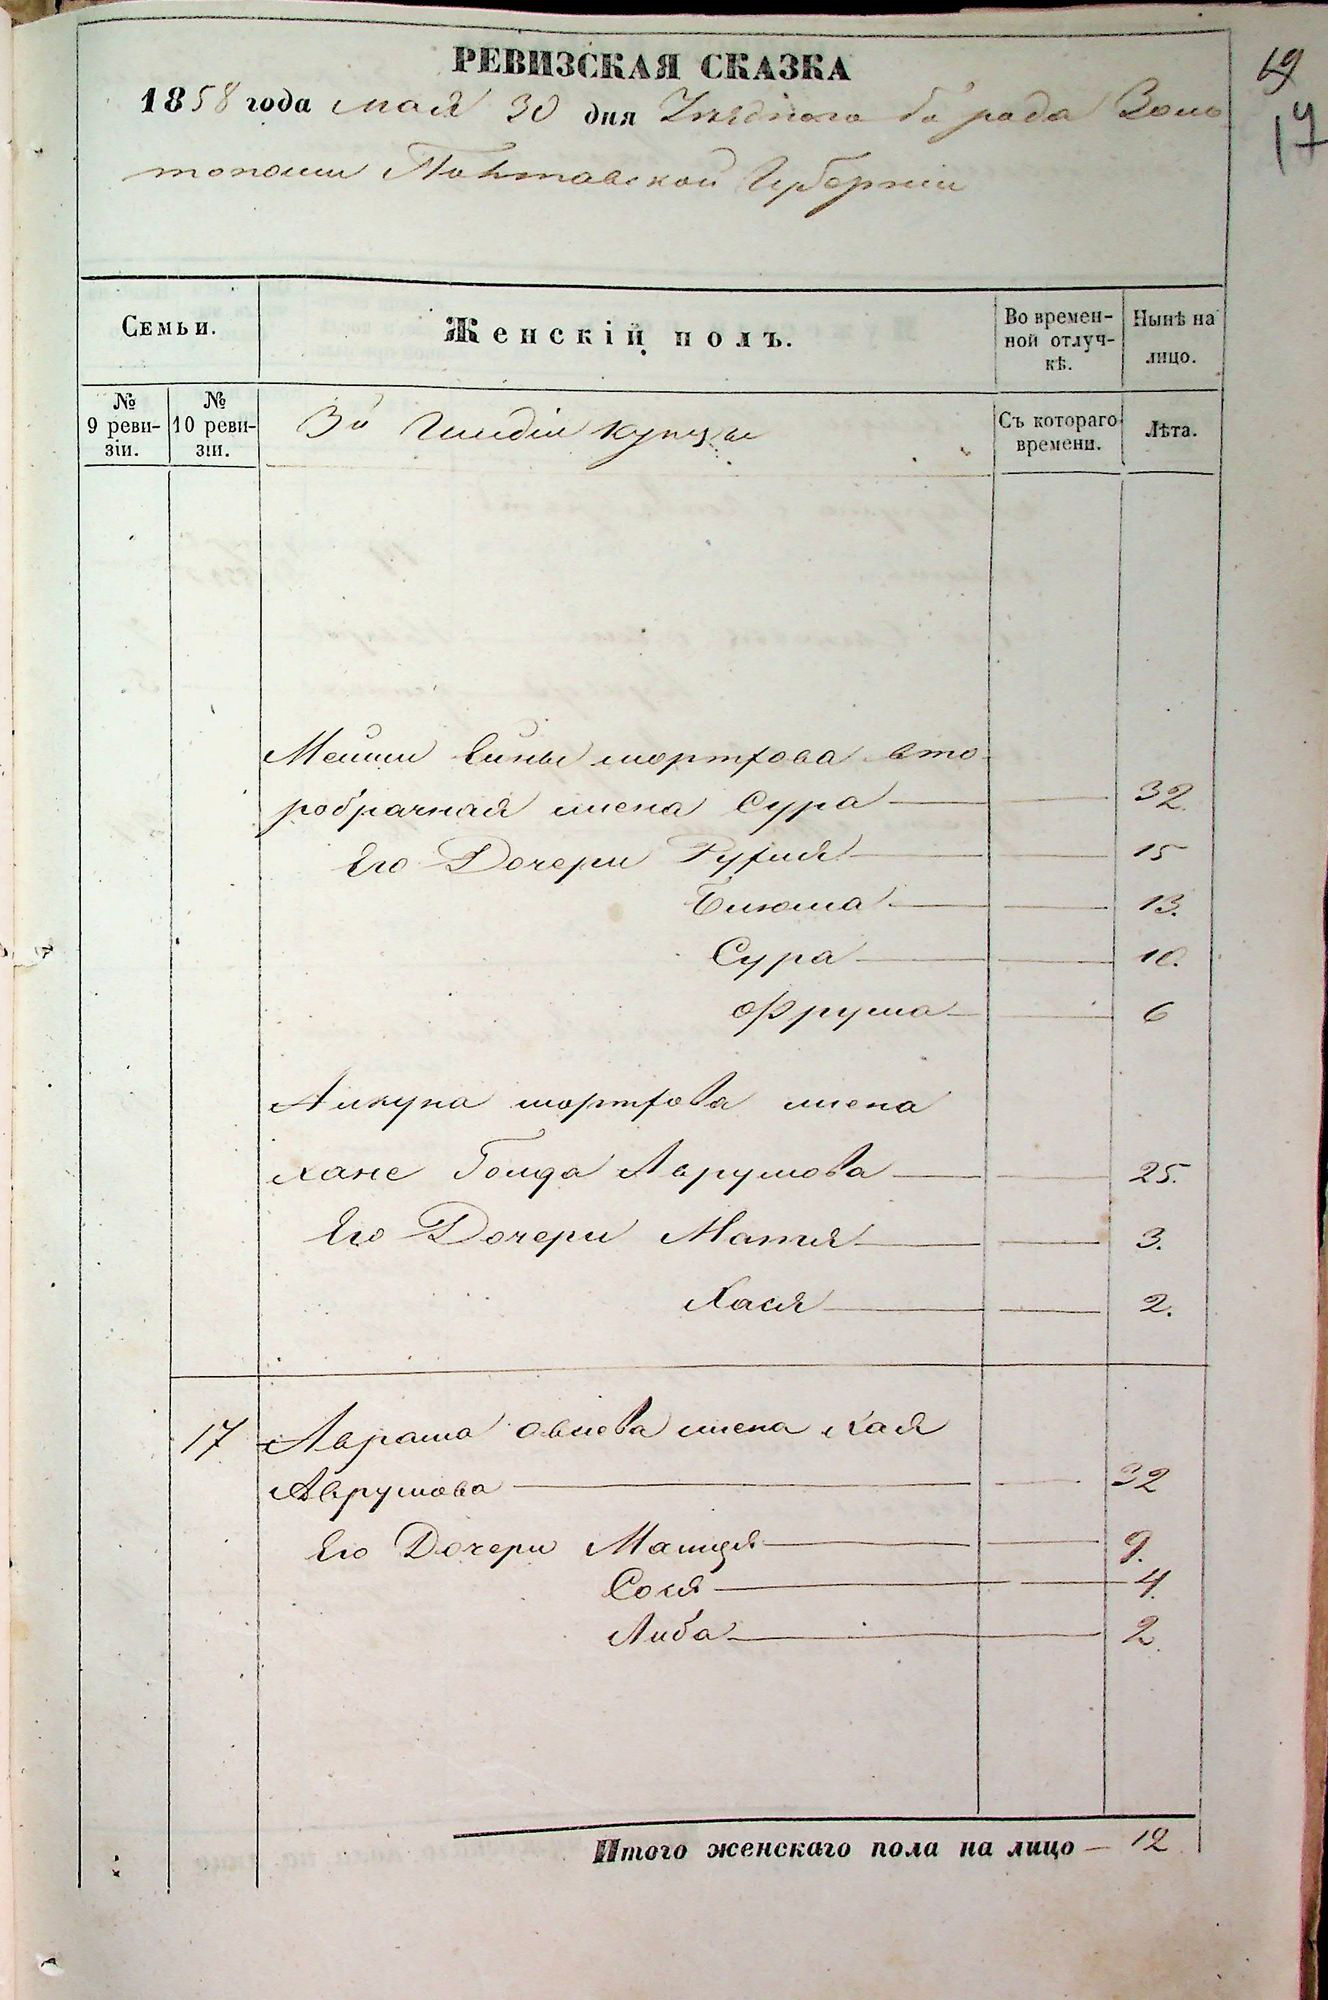 69
17
РЕВИЗСКАЯ СКАЗКА
1858 года мая 30 дня Уѣзднаго города Золо
тоноши Полтавской Губерніи
Семьи.
Женскій полъ.
Во времен-
ной отлуч-
кѣ.
Нынѣ на
лицо.
№
9 реви-
зіи.
№
10 реви-
зіи.
3й Гильдіи купцы
Съ котораго
времени.
Лѣта.
вто
робрачная жена Сура 32
Его Дочери 15
13.
Сура 10.
Фрума 6
жена
Хане Голда Аврумова 25.
Его Дочери 3.
Хася 2.
17 Аврама жена Хая
Аврумова 32
Его Дочери 9.
Сося 4.
Либа 2
Итого женскаго пола на лицо — 12